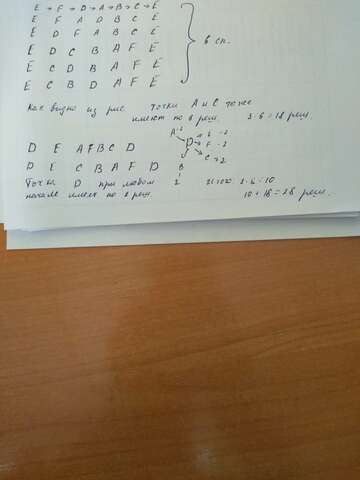 E → F → D → A → B → C → E
E F A D B C E
E D F A B C E
E D C B A F E
E C D B A F E
E C B D A F E
6 сп.
Как видно из рис точки A и C тоже
имеют по 6 реш. 3·6=18 реш.
D E A F B C D
D E C B A F D
A-2
D
E-2
F-2
C-2
B
2
Точки D при любом
начале имеет по 2 реш.
Итого: 2·5=10
10+18=28 реш.